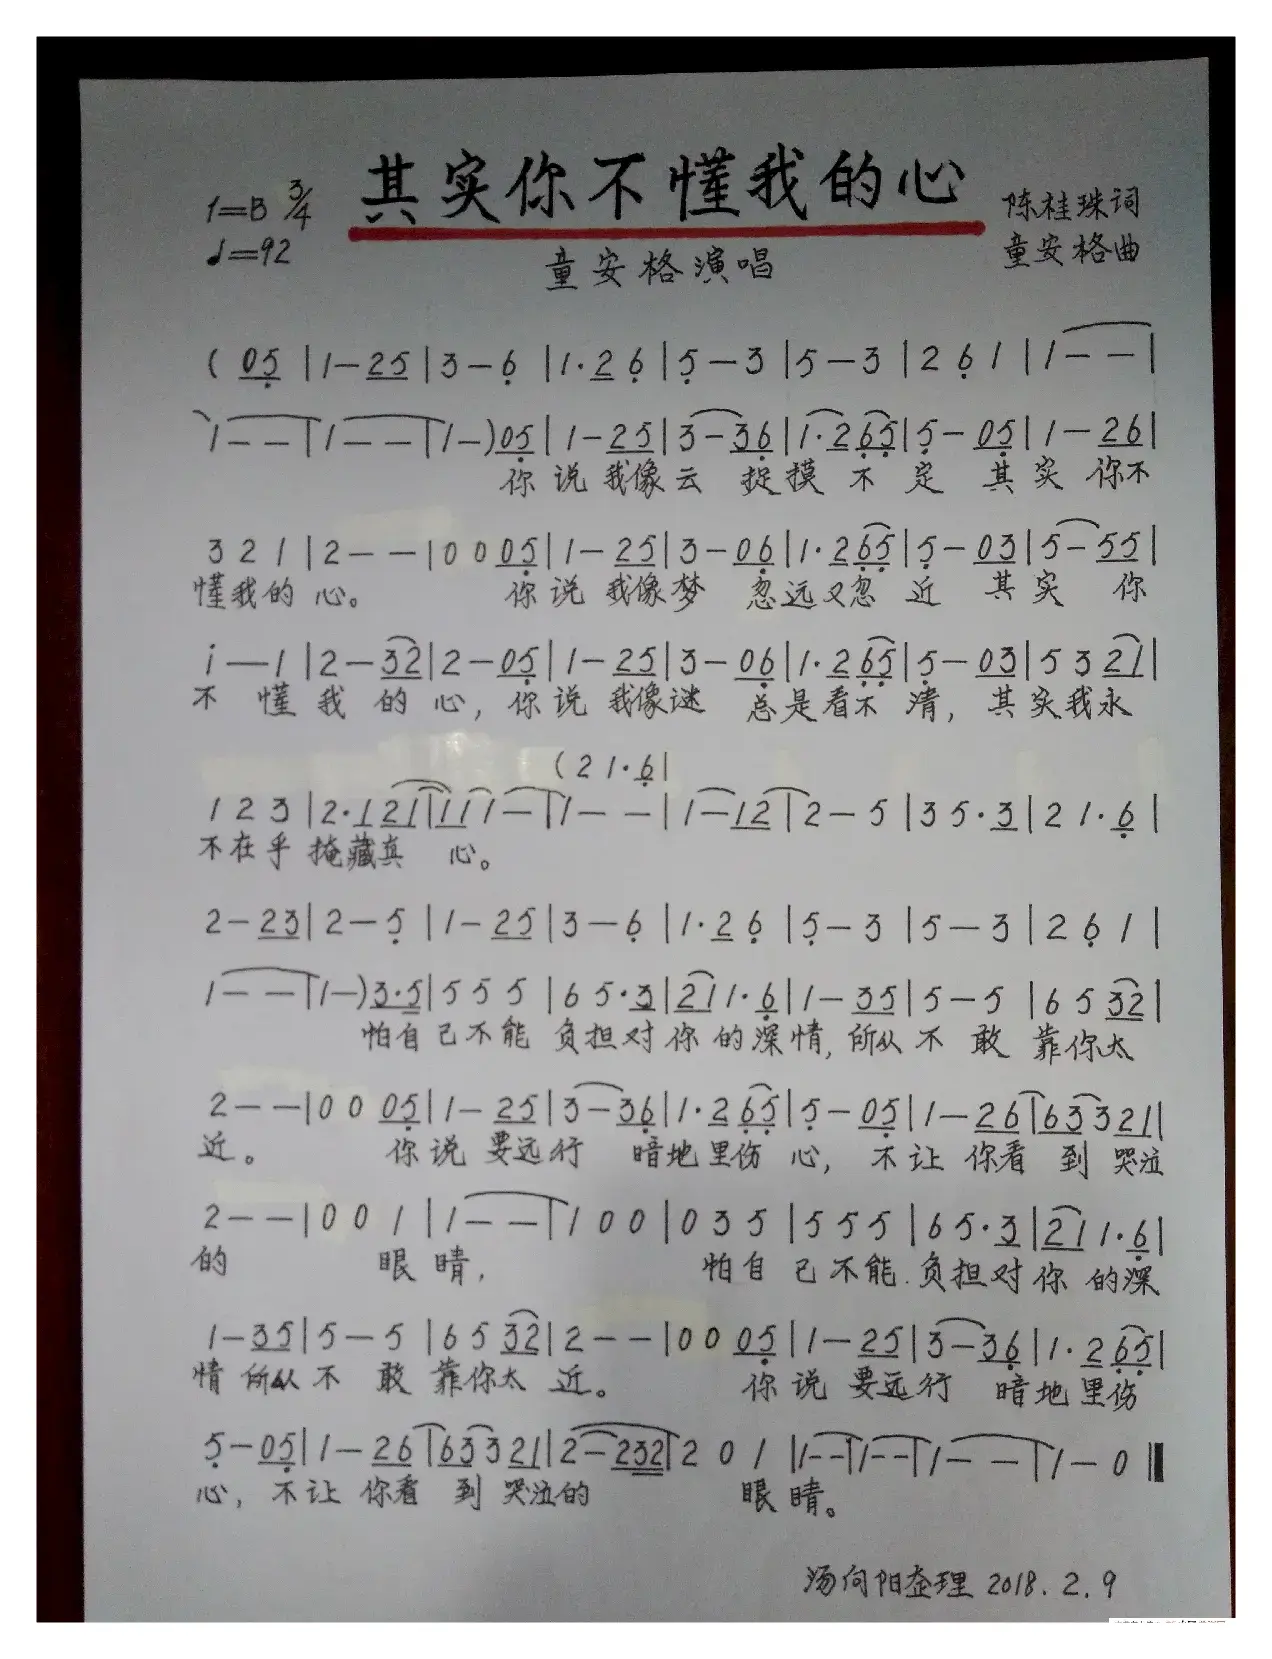 其实你不懂我的心
1=B 3/4
♩=92
陈桂珠词
童安格曲
童安格演唱
( 05 | 1—25 | 3—6 | 1·2 6 | 5—3 | 5—3 | 2 6 1 | 1—— |
1—— | 1—— | 1—) 05 | 1—25 | 3—36 | 1·265 | 5—05 | 1—26 |
你说我像云 捉摸不定 其实你不
3 2 1 | 2—— | 0 0 05 | 1—25 | 3—06 | 1·265 | 5—03 | 5—55 |
懂我的心。 你说我像梦 忽远又忽近 其实你
i—1 | 2—32 | 2—05 | 1—25 | 3—06 | 1·265 | 5—03 | 5 3 21 |
不懂我的心，你说我像谜 总是看不清，其实我永
( 2 1·6 |
1 2 3 | 2·1 21 | 11 1— | 1—— | 1—12 | 2—5 | 3 5·3 | 2 1·6 |
不在乎掩藏真心。
2—23 | 2—5 | 1—25 | 3—6 | 1·2 6 | 5—3 | 5—3 | 2 6 1 |
1—— | 1—) 3·5 | 5 5 5 | 6 5·3 | 21 1·6 | 1—35 | 5—5 | 6 5 32 |
怕自己不能负担对你的深情，所从不敢靠你太
2—— | 0 0 05 | 1—25 | 3—36 | 1·2 65 | 5—05 | 1—26 | 63 3 21 |
近。 你说要远行 暗地里伤心，不让你看到哭泣
2—— | 0 0 1 | 1—— | 1 0 0 | 0 3 5 | 5 5 5 | 6 5·3 | 21 1·6 |
的 眼睛， 怕自己不能负担对你的深
1—35 | 5—5 | 6 5 32 | 2—— | 0 0 05 | 1—25 | 3—36 | 1·2 65 |
情所从不敢靠你太近。 你说要远行 暗地里伤
5—05 | 1—26 | 63 3 21 | 2—232 | 2 0 1 | 1—— | 1—— | 1—— | 1—0 ‖
心，不让你看到哭泣的 眼睛。
汤向阳整理 2018.2.9